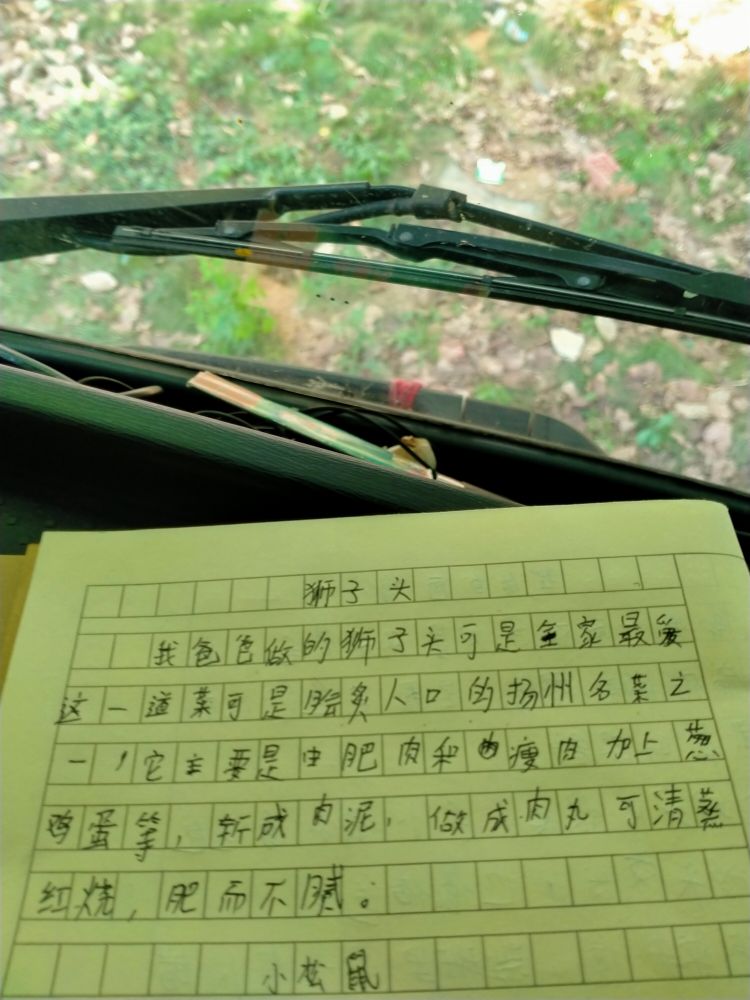 狮子头
我爸爸做的狮子头可是全家最爱
这一道菜可是脍炙人口的扬州名菜之
一,它主要是由肥肉和瘦肉加上葱
鸡蛋等,斩成肉泥,做成肉丸可清蒸
红烧,肥而不腻。
小松鼠